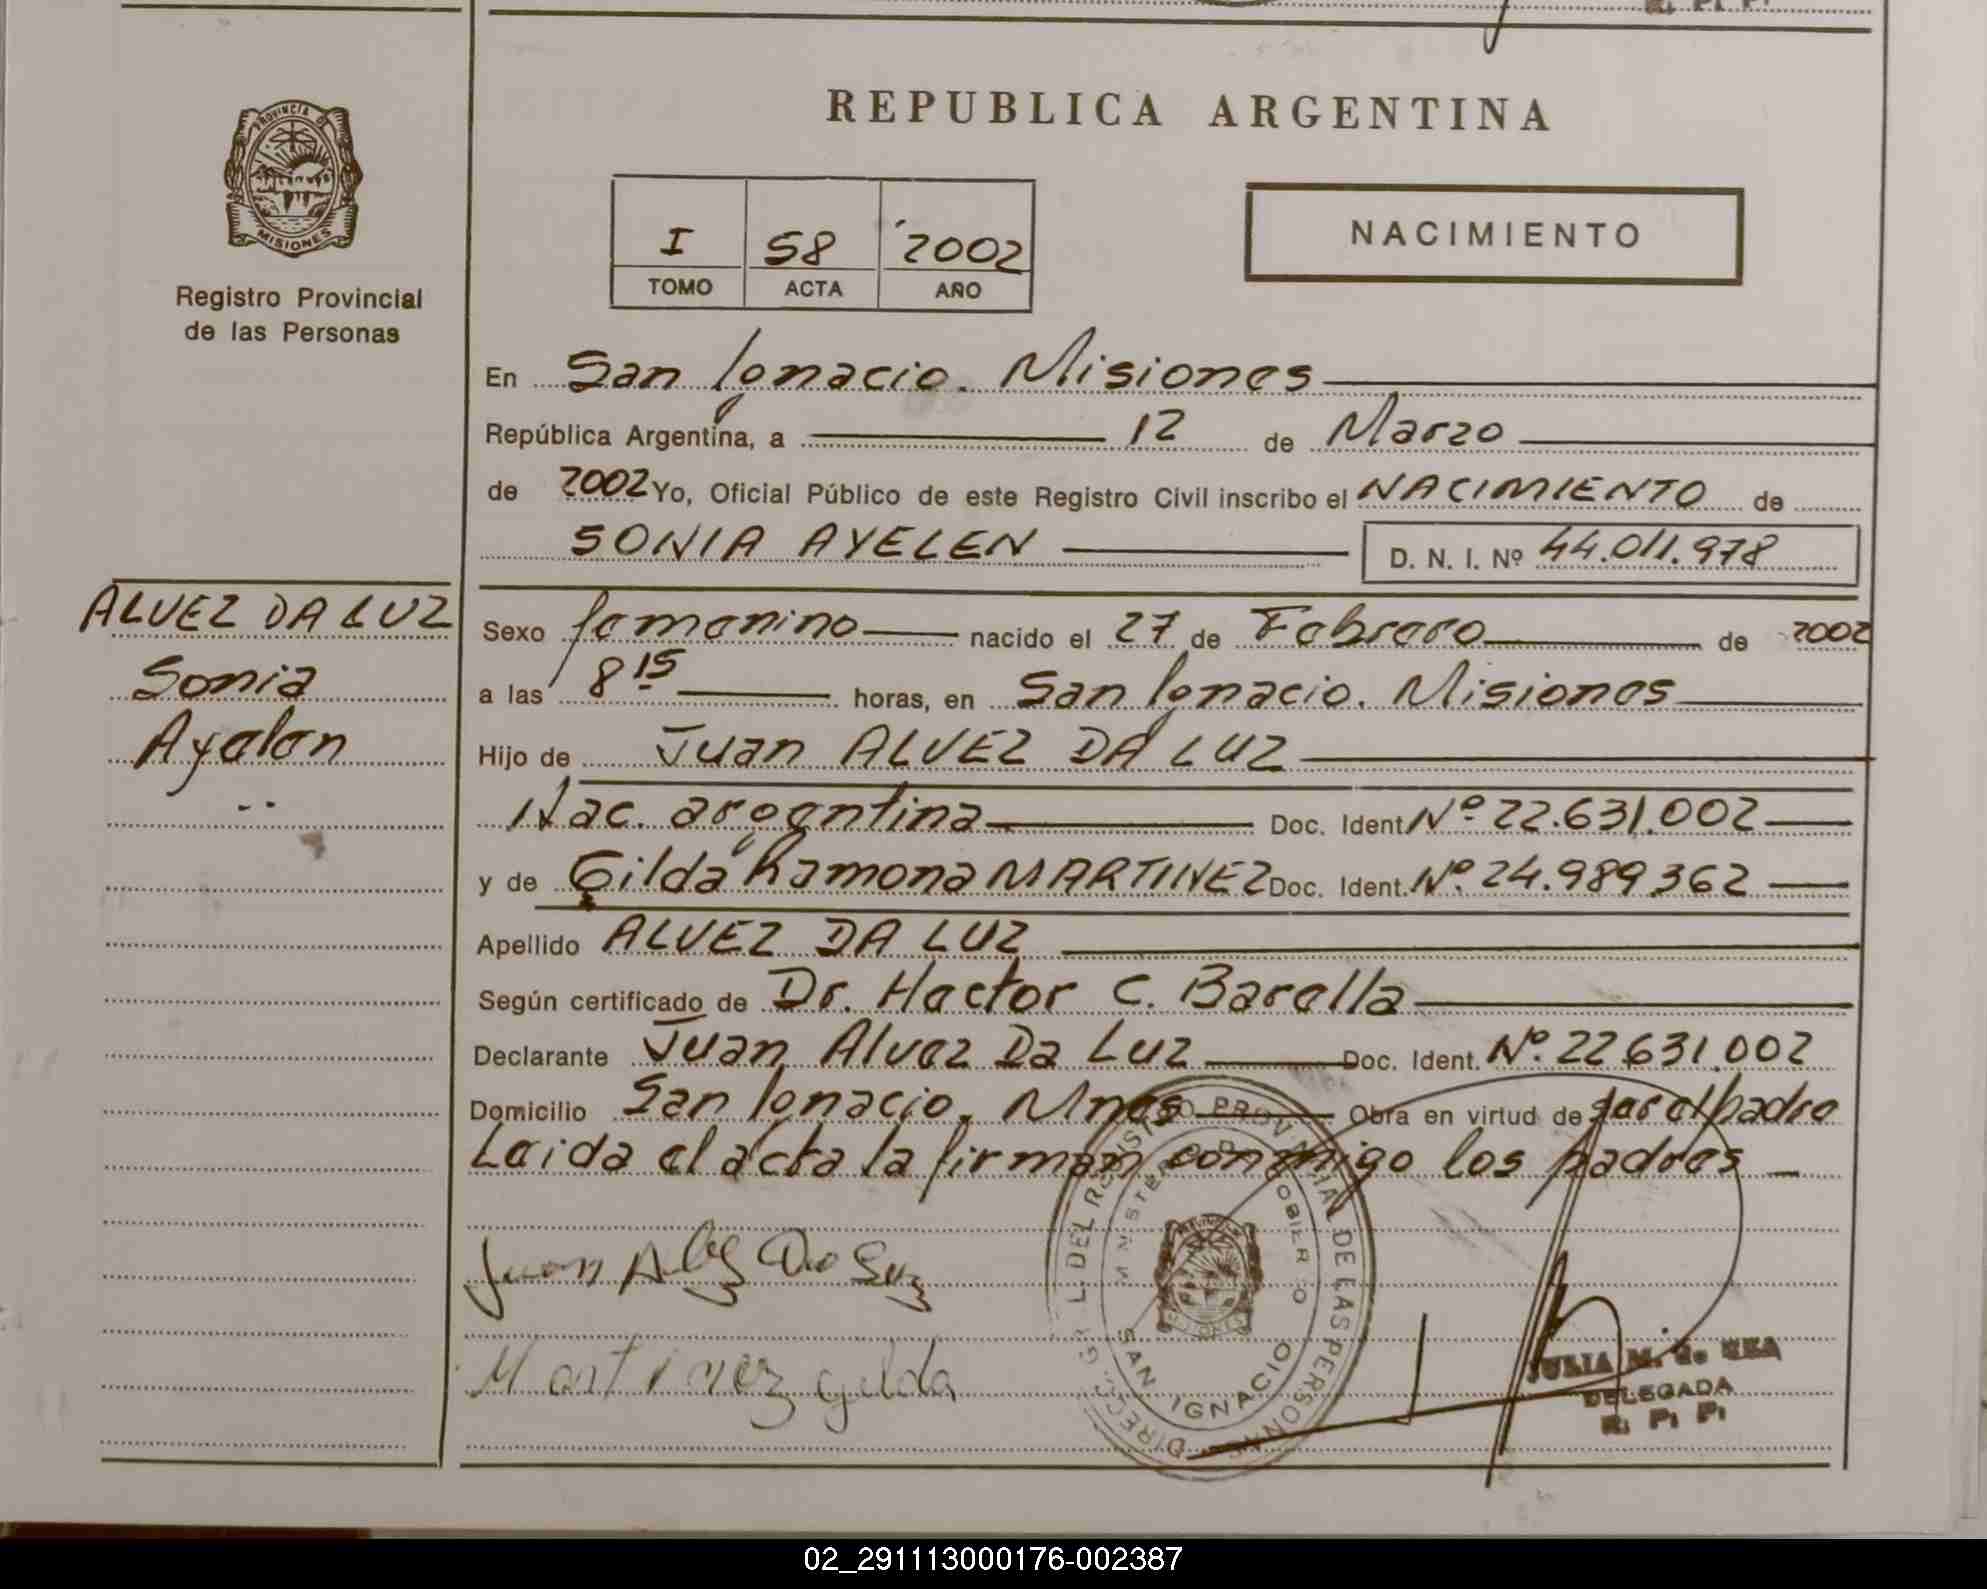 R. P. P.
REPUBLICA ARGENTINA
PROVINCIA DE
MISIONES
Registro Provincial
de las Personas
I 58 2002
TOMO ACTA AÑO
NACIMIENTO
En San Ignacio. Misiones
República Argentina, a 12 de Marzo
de 2002 Yo, Oficial Público de este Registro Civil inscribo el NACIMIENTO de
SONIA AYELEN D. N. I. Nº 44.011.978
ALVEZ DA LUZ
Sonia
Ayelen
Sexo femenino nacido el 27 de Febrero de 2002
a las 8 15 horas, en San Ignacio. Misiones
Hijo de Juan ALVEZ DA LUZ
Nac. argentina Doc. Ident. Nº 22.631.002
y de Gilda Ramona MARTINEZ Doc. Ident. Nº. 24.989.362
Apellido ALVEZ DA LUZ
Según certificado de Dr. Hector C. Barella
Declarante Juan Alvez Da Luz Doc. Ident. Nº. 22.631.002
Domicilio San Ignacio. Mnes Obra en virtud de ser el padre
Leida el acta la firman conmigo los padres
Juan Alvez Da Luz
Martinez gilda
DIRECC. GRAL. DEL REGISTRO PROVINCIAL DE LAS PERSONAS
MINISTERIO DE GOBIERNO
SAN IGNACIO
JULIA M. de REA
DELEGADA
R. P. P.
02_291113000176-002387